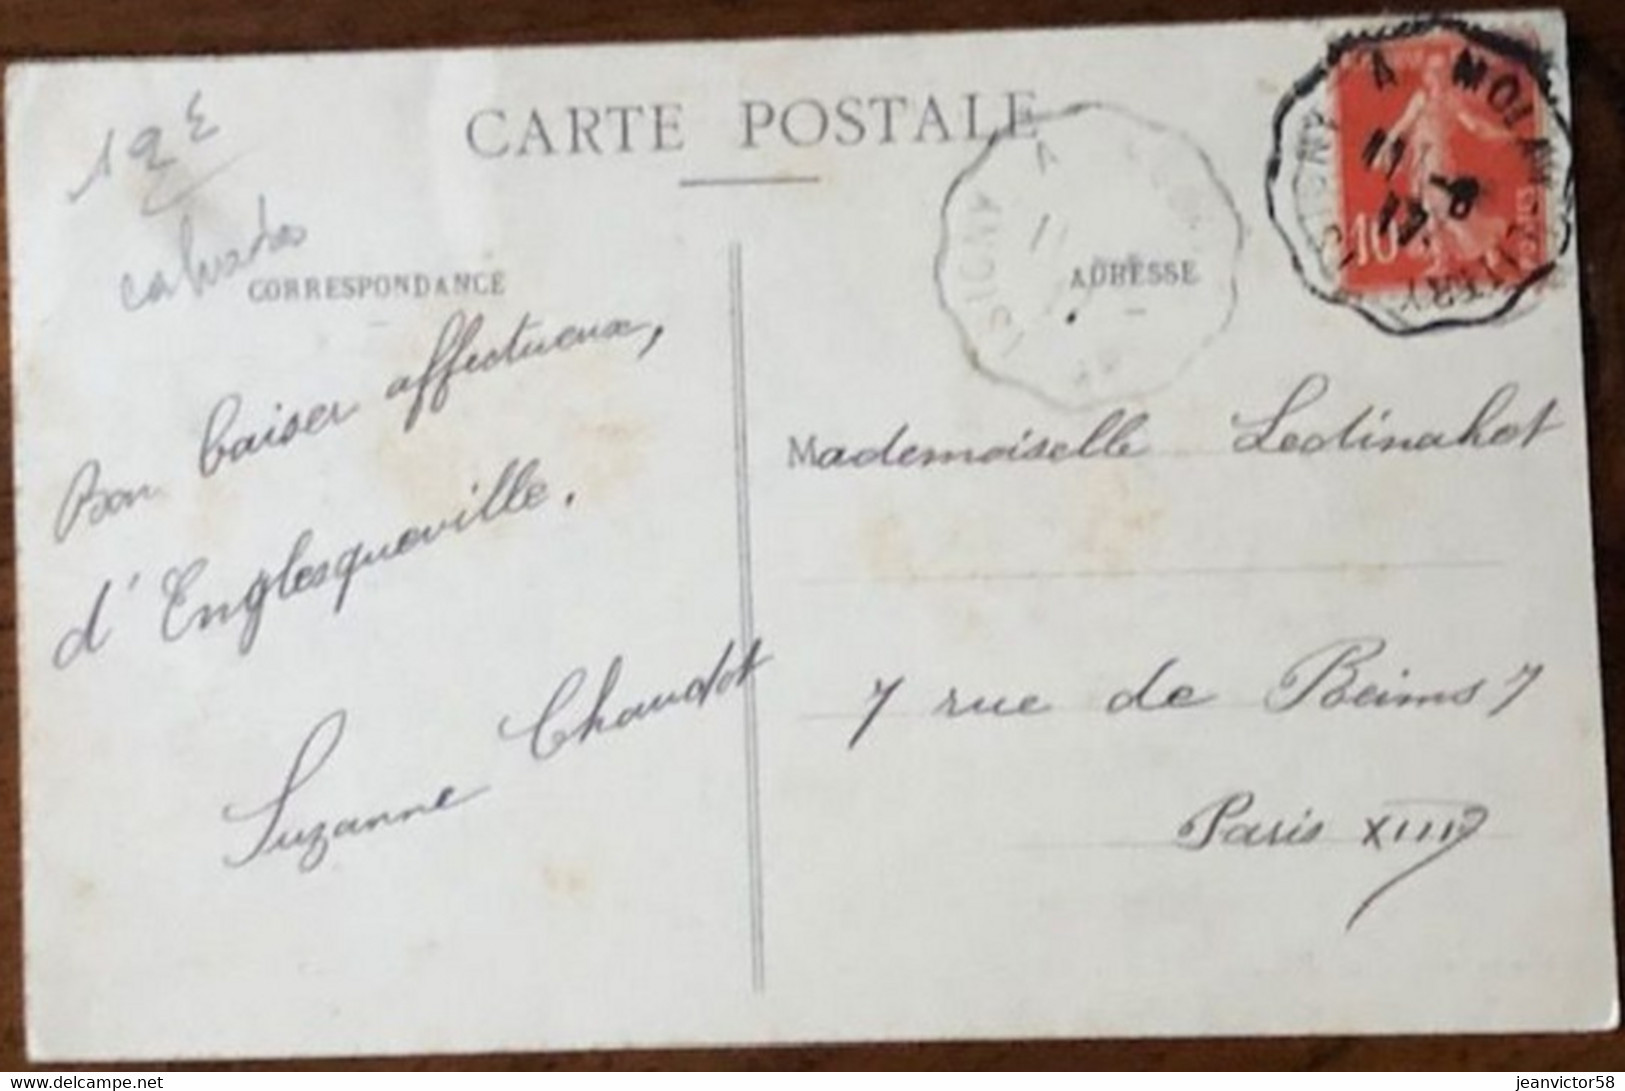 CARTE POSTALE
12 €
calvados
CORRESPONDANCE
ADRESSE
ISIGNY A
ISIGNY A MOLAY-LITTRY
11 -8
10
Bon baiser affectueux,
d'Englesqueville.
Suzanne Chaudot
Mademoiselle Ledinahot
7 rue de Reims 7
Paris XIII
jeanvictor58